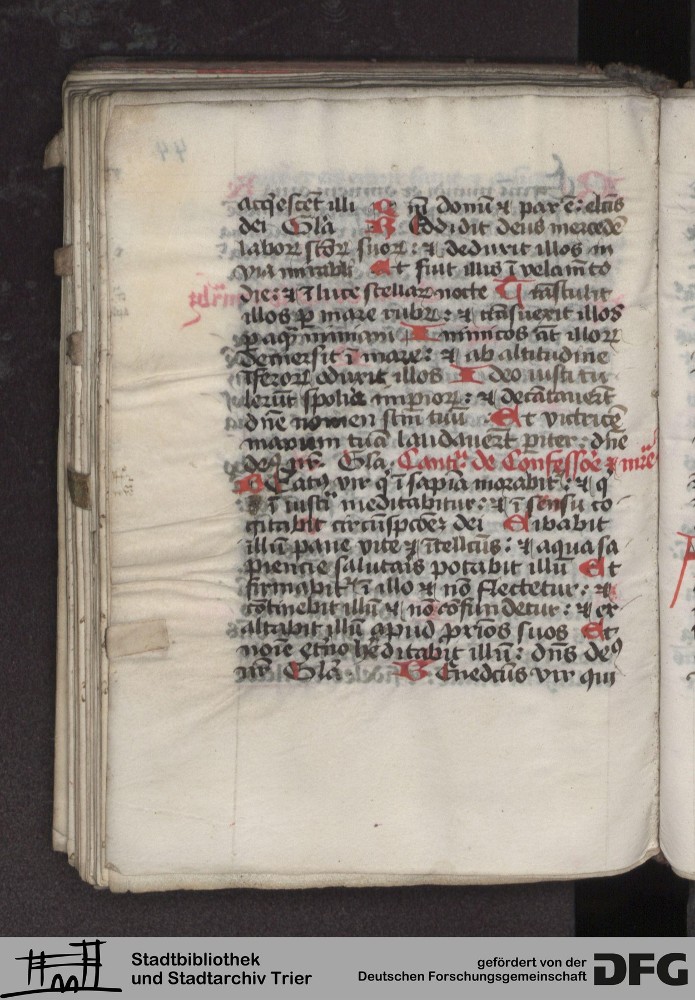 acq̄escēt illi Q m̄ donū ⁊ pax ē: elcīs
dei Glā R Eddidit deus mercedē
labor sctōꝝ suoꝝ: ⁊ deduxit illos in
via mirabili Et fuit illis ī velamēto
diei: ⁊ ī luce stellaꝝ nocte Trāstulit
illos ꝑ mare rubrū: ⁊ trāsuexit illos
ꝑ aquā nimiam Inimicos āt illoꝝ
demersit ī mare: ⁊ ab altitudine
īferoꝝ eduxit illos Ideo iusti tu
lerūt spolia impioꝝ: ⁊ decātauerūt
dñe nomen sctm̄ tuū Et victricē
manum tuā laudauerūt ꝑiter: dñe
deꝰ nr̄ Glā Cantꝰ de Confessōe ⁊ mr̄e
BEatꝰ vir q̄ ī sapīa morabit᷑: ⁊ q̄
ī iusticia meditabitur: ⁊ ī sensu co
gitabit circūspectōeꝫ dei Cibabit
illū pane vite ⁊ ītellcūs: ⁊ aqua sa
piencie salutaīs potabit illū Et
firmabit᷑ ī illo ⁊ nō flectetur: ⁊
cōtinebit illū ⁊ nō cōfundetur: ⁊ ex
altabit illū apud ꝓximos suos Et
noīe etno hēditabit illū: dñs deꝰ
nr̄ Glā Benedcūs vir qui
Stadtbibliothek
und Stadtarchiv Trier
gefördert von der
Deutschen Forschungsgemeinschaft
DFG